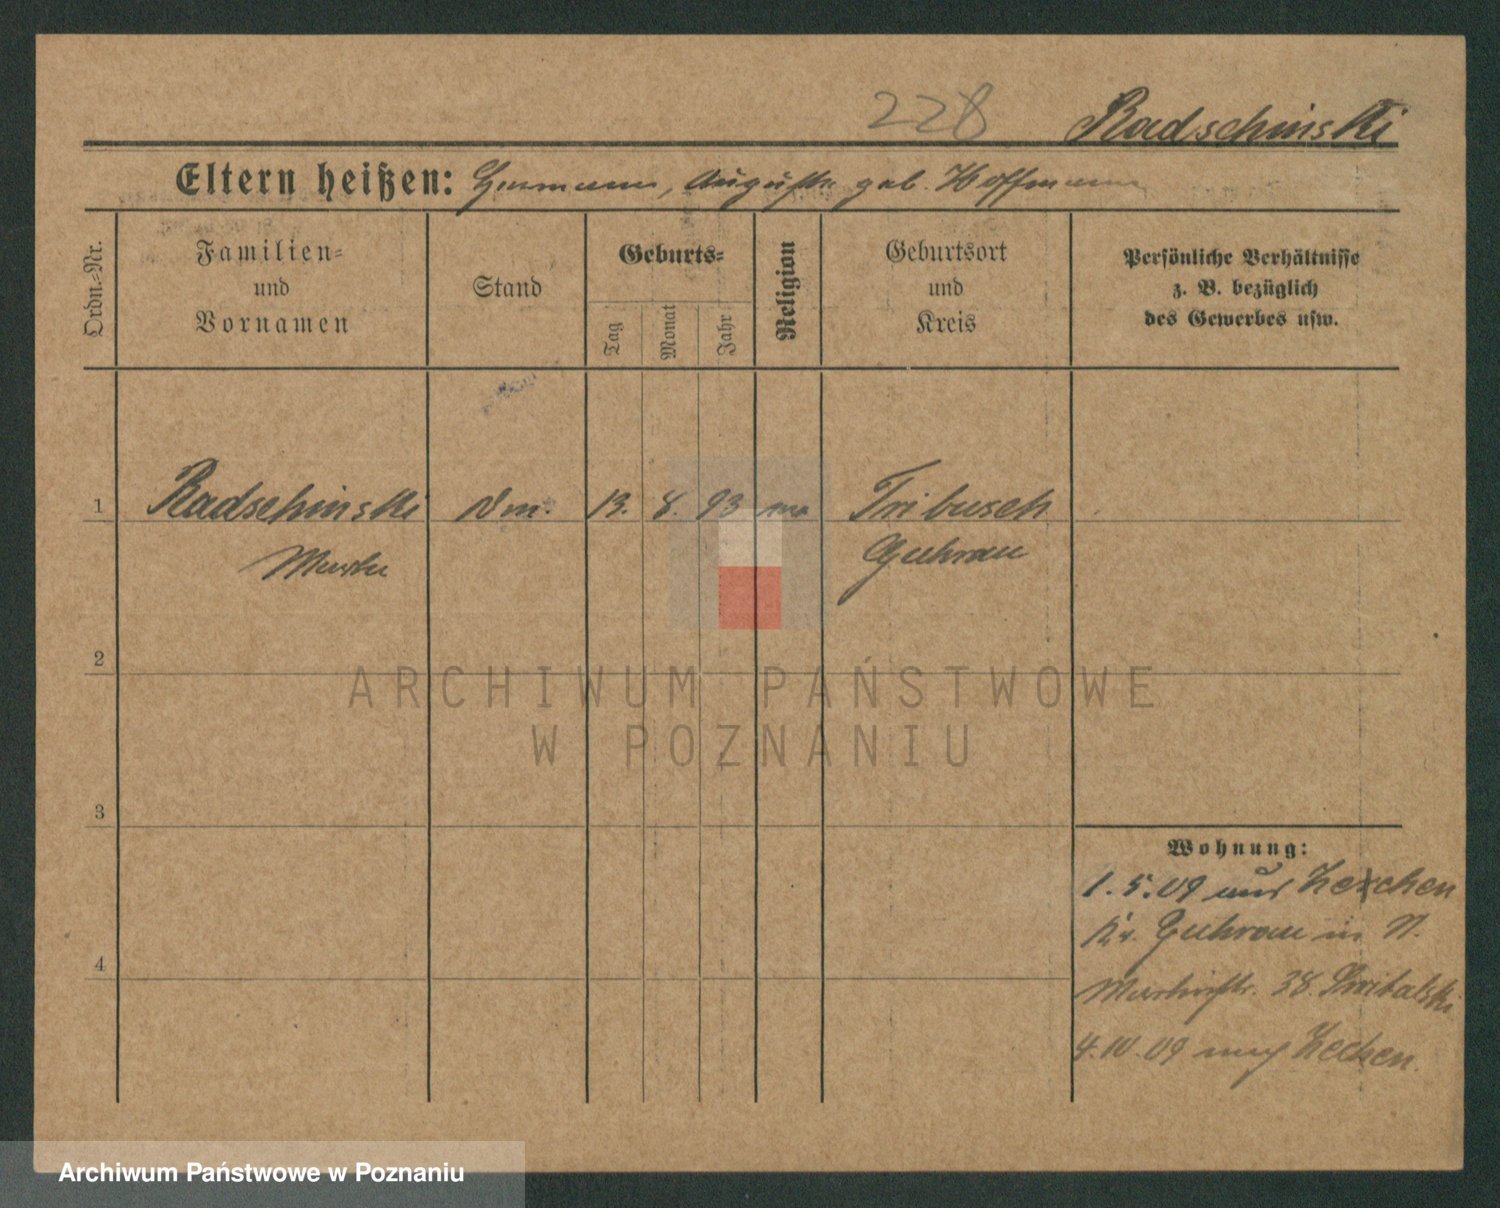 228 Radschinski
Eltern heißen: Hermann, Auguste geb. Hoffmann
Ordn.-Nr.
Familien-
und
Vornamen
Stand
Geburts-
Tag
Monat
Jahr
Religion
Geburtsort
und
Kreis
Persönliche Verhältnisse
z. B. bezüglich
des Gewerbes usw.
1 Radschinski 13. 8. 93 Tribusch
Martha Guhrau
2
ARCHIWUM PAŃSTWOWE
W POZNANIU
3
Wohnung:
1.5.09 aus
Kr. Guhrau in
4
Martinstr. 38.
4.IV.09 nach Zechen.
Archiwum Państwowe w Poznaniu